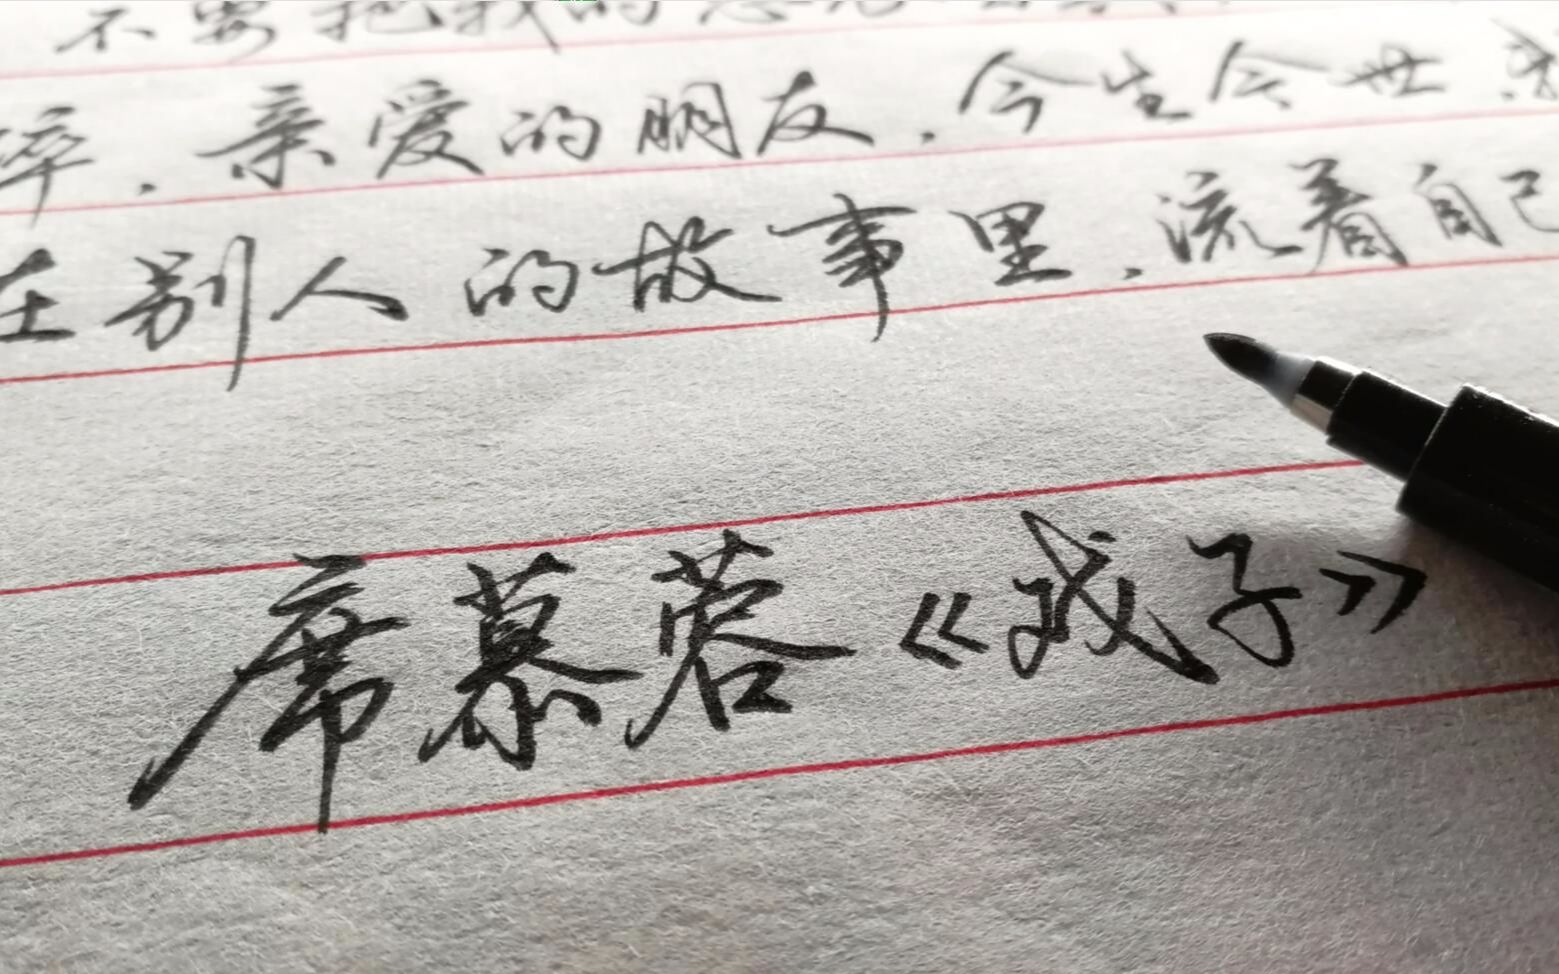 不要把我的悲
碎.亲爱的朋友.今生今世
在别人的故事里.流着自己
席慕蓉《戏子》